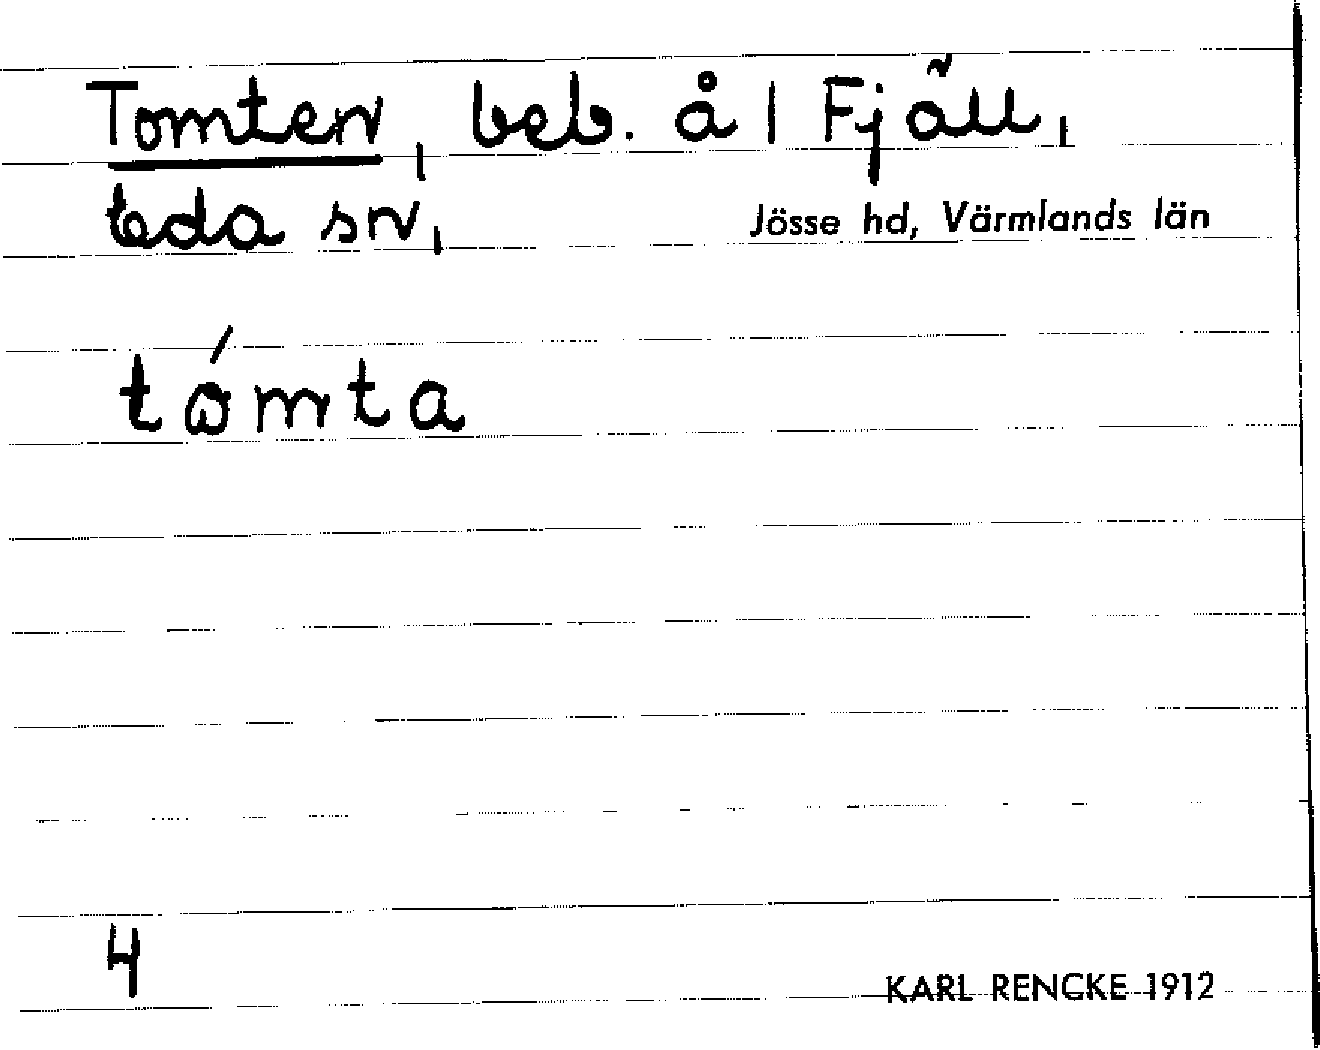 Tomten, beb. å 1 Fjäll,
Eda sn, Jösse hd, Värmlands län
tómta
4
KARL RENCKE 1912